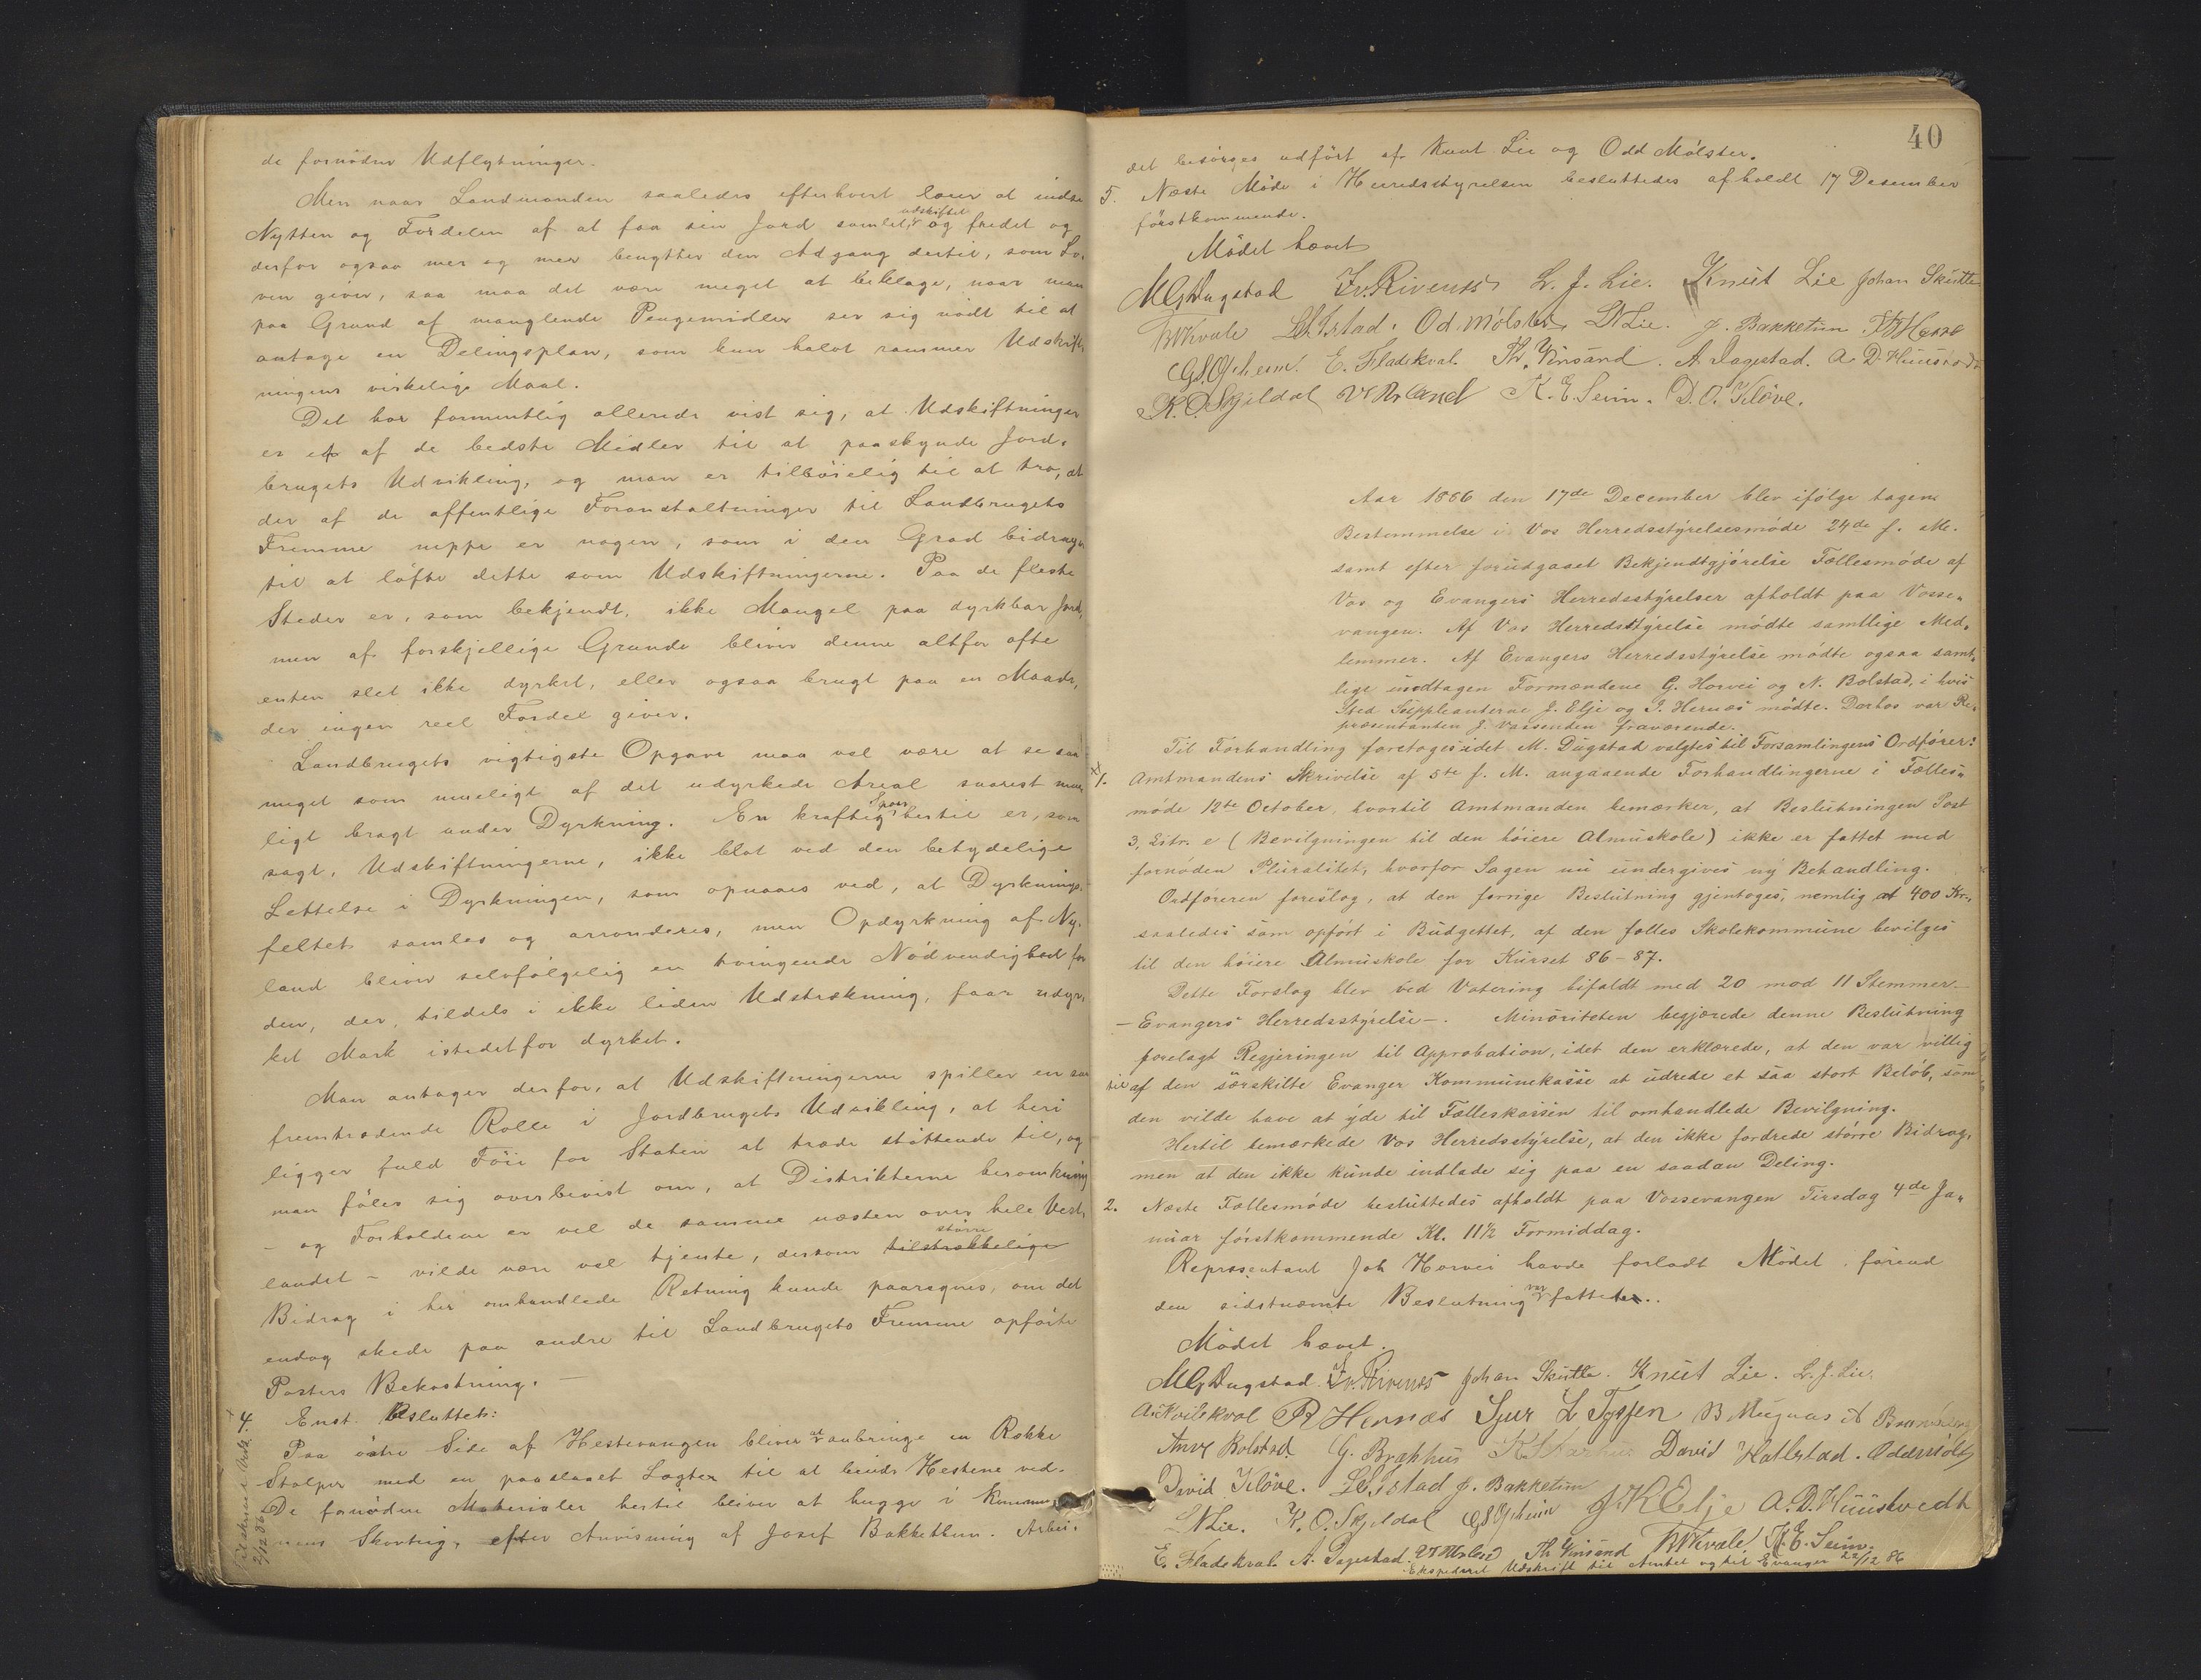 de fornödne Udflytninger.
Men naar Landmanden saaledes efterhvert lærer at indse
Nytten og Fordelen af at faa sin Jord samlet, udskiftet og fredet og
derfor ogsaa mer og mer benytter den Adgang dertil, som Lo-
ven giver, saa maa det være meget at beklage, naar man
paa Grund af manglende Pengemidler ser sig nödt til at
antage en Delingsplan, som kun halvt rammer Udskift-
ningens virkelige Maal.
Det har formentlig allerede vist sig, at Udskiftninger
er et af de bedste Midler til at paaskynde Jord-
brugets Udvikling, og man er tilböielig til at tro, at
der af de offentlige Foranstaltninger til Landbrugets
Fremme neppe er nogen, som i den Grad bidrager
til at löfte dette som Udskiftningerne. Paa de fleste
Steder er, som bekjendt, ikke Mangel paa dyrkbar Jord,
men af forskjellige Grunde bliver denne altfor ofte
enten slet ikke dyrket, eller ogsaa brugt paa en Maade,
der ingen reel Fordel giver.
Landbrugets vigtigste Opgave maa vel være at se saa
meget som mueligt af det udyrkede Areal snarest mue-
ligt bragt under Dyrkning. En kraftig Spore hertil er, som
sagt, Udskiftningerne, ikke blot ved den betydelige
Lettelse i Dyrkningen, som opnaaes ved, at Dyrknings-
feltet samles og arronderes, men Opdyrkning af Ny-
land bliver selvfölgelig en tvingende Nödvendighed for
den, der, tildels i ikke liden Udstrækning, faar udyr-
ket Mark istedetfor dyrket.
Man antager derfor, at Udskiftningerne spiller en saa
fremtrædende Rolle i Jordbrugets Udvikling, at heri
ligger fuld Föie for Staten at træde stöttende til, og
man föler sig overbevist om, at Distrikterne heromkring
- og Forholdene er vel de samme næsten over hele Vest-
landet - vilde være vel tjente, dersom tilstrækkelige större
Bidrag i her omhandlede Retning kunde paaregnes, om det
endog skede paa andre til Landbrugets Fremme opförte
Posters Bekostning. —
4. Enst. Besluttet:
Paa östre Side af Hestevangen bliver at anbringe en Række
Stolper med en paaslaaet Lægter til at binde Hestene ved.
De fornödne Materialer hertil bliver at hugge i Kommu-
nens Skovteig, efter Anvisning af Josef Bakketun. Arbei-
40
det besörges udfört af Knut Lie og Odd Mölster.
5. Næste Möde i Herredsstyrelsen besluttedes afholdt 17 Desember
förstkommende.
Mödet hævet
MGDugstad Iv. Rivenes L. J. Lie. Knut Lie Johan Skutle
Od. Mölster LNLie. J. Bakketun
GSOpheim. E. Fladekval. Th. Vinsand. A. Dagestad. A. D. Huustvedt
K. O. Skjeldal K. E. Seim. D. O. Klöve.
Aar 1886 den 17de December blev ifölge tagen
Bestemmelse i Vos Herredsstyrelsesmöde 24de f. M.
samt efter forudgaaet Bekjendtgjörelse Fællesmöde af
Vos og Evangers Herredsstyrelser afholdt paa Vosse-
vangen. Af Vos Herredsstyrelse mödte samtlige Med-
lemmer. Af Evangers Herredsstyrelse mödte ogsaa samt-
lige undtagen Formændene G. Horvei og N. Bolstad, i hvis
Sted Suppleanterne J. Elje og I. Hernæs mödte. Derhos var Re-
præsentanten J. Vassenden fraværende.
Til Forhandling foretoges idet M. Dugstad valgtes til Forsamlingens Ordförer:
1. Amtmandens Skrivelse af 5te f. M. angaaende Forhandlingerne i Fælles-
möde 12te October, hvortil Amtmanden bemærker, at Beslutningen Post
3, Litr. e (Bevilgningen til den höiere Almuskole) ikke er fattet med
fornöden Pluralitet, hvorfor Sagen nu undergives ny Behandling.
Ordföreren foreslog, at den forrige Beslutning gjentoges, nemlig at 400 Kr.,
saaledes som opfört i Budgettet, af den fælles Skolekommune bevilges
til den höiere Almuskole for Kurset 86-87.
Dette Forslag blev ved Votering bifaldt med 20 mod 11 Stemmer-
-Evangers Herredsstyrelse-. Minoriteten begjærede denne Beslutning
forelagt Regjeringen til Approbation, idet den erklærede, at den var villig
til af den særskilte Evanger Kommunekasse at udrede et saa stort Belöb, som
den vilde have at yde til Fælleskassen til omhandlede Bevilgning.
Hertil bemærkede Vos Herredsstyrelse, at den ikke fordrede större Bidrag,
men at den ikke kunde indlade sig paa en saadan Deling.
2. Næste Fællesmöde besluttedes afholdt paa Vossevangen Tirsdag 4de Ja-
nuar förstkommende Kl. 11½ Formiddag.
Repræsentant Joh Horvei havde forladt Mödet, forend
den sidstnævnte Beslutning var fattet.
Mödet hævet.
MGDugstad. Iv. Rivenes Johan Skutle. Knut Lie. L. J. Lie.
R Hernæs Sjur L Tossen B Mugnas
Anve Bolstad. G. Brakhus David Hallstad. Odd Mölster
David Klöve. J. Bakketun
LNLie. K. O. Skjeldal GSOpheim J. K Elje A. D. Huustvedt
E. Fladekval. A. Dagestad. Th Vinsand K. E. Seim.
Ekspederet Udskrift til Amtet og til Evanger 22/12 86